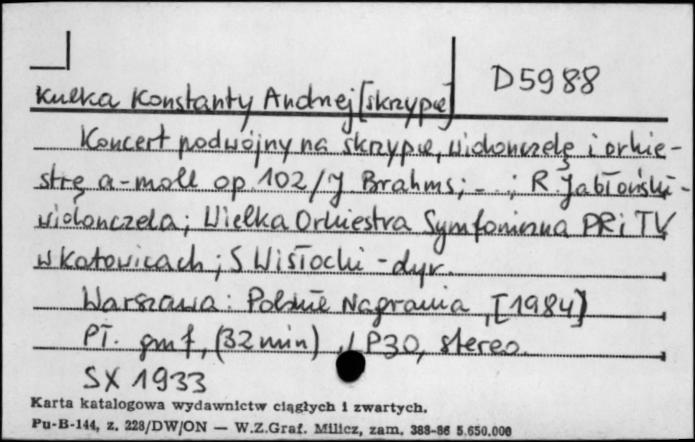 D5988
Kulka Konstanty Andrzej [skrzypce]
Koncert podwójny na skrzypce, wiolonczelę i orkie-
strę a-moll op. 102 / J Brahms; - ; R. Jabłoński -
wiolonczela; Wielka Orkiestra Symfoniczna PR i TV
w Katowicach; S Wisłocki - dyr.
Warszawa: Polskie Nagrania, [1984]
Pł. gmf, (32 min), P30, stereo.
SX 1933
Karta katalogowa wydawnictw ciągłych i zwartych.
Pu-B-144, z. 228/DW/ON — W.Z.Graf. Milicz, zam. 388-86 5.650.000